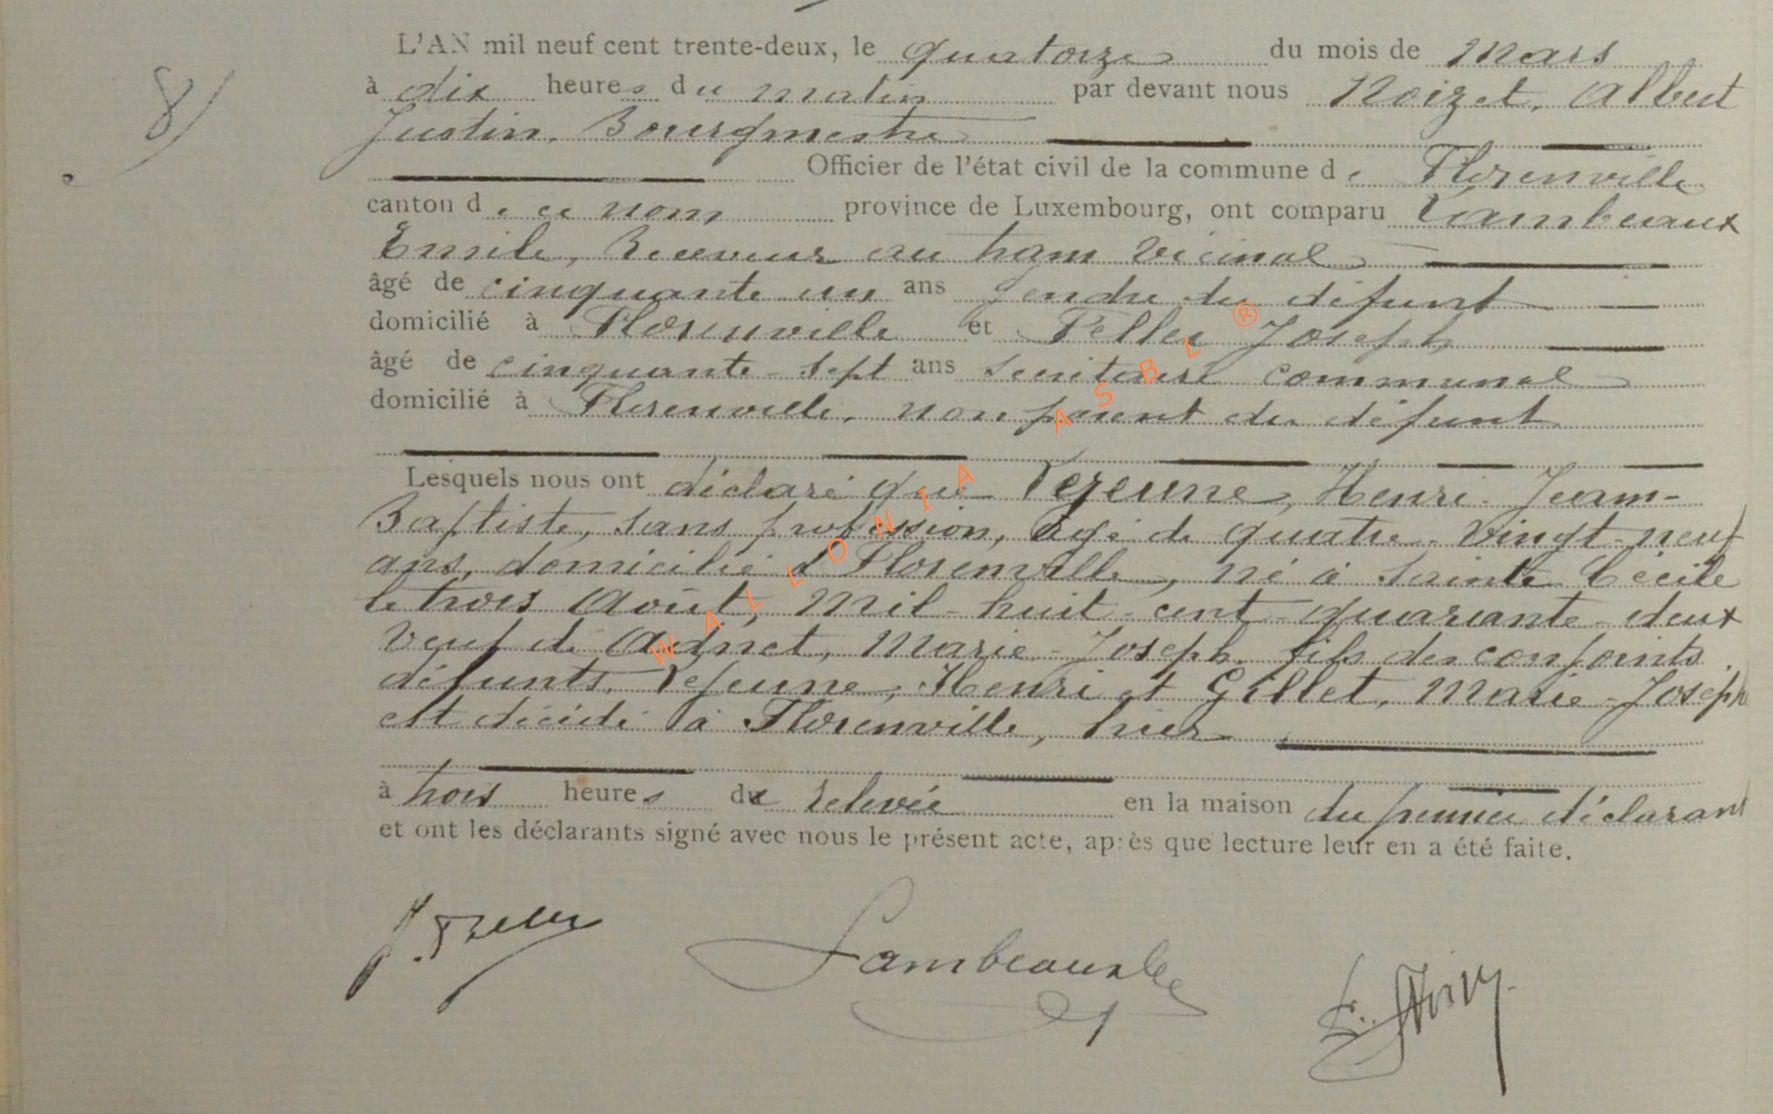 8/
L'AN mil neuf cent trente-deux, le quatorze du mois de Mars
à dix heures du matin par devant nous Noizet, Albert
Justin, Bourgmestre
Officier de l'état civil de la commune de Florenville
canton de ce nom, province de Luxembourg, ont comparu Lambeaux
Emile, Receveur au tram vicinal
âgé de cinquante un ans gendre du défunt
domicilié à Florenville et Feller Joseph
âgé de cinquante-sept ans secrétaire communal
domicilié à Florenville, non parent du défunt
Lesquels nous ont déclaré que Lejeune, Henri-Jean-
Baptiste, sans profession, âgé de quatre-vingt-neuf
ans, domicilié à Florenville, né à Sainte Cécile
le trois Août, mil-huit-cent-quarante-deux
veuf de Adnet, Marie-Joseph, fils des conjoints
défunts, Lejeune, Henri et Gillet, Marie-Joseph
est décédé à Florenville, hier
à trois heures de relevée en la maison du premier déclarant
et ont les déclarants signé avec nous le présent acte, après que lecture leur en a été faite.
J. Feller Lambeaux
WALLONIA ASBL ®